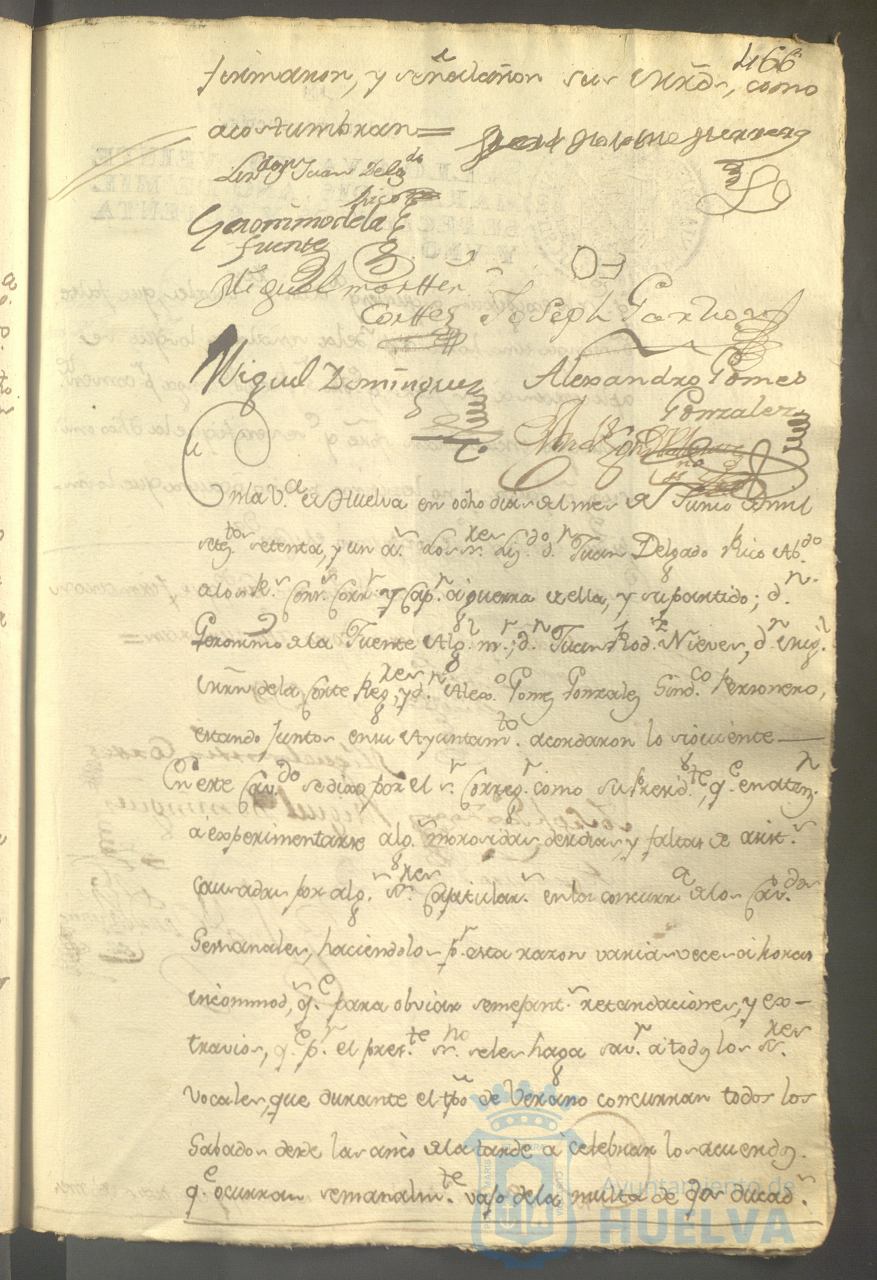 466
firmaron, y señalaron sus mrds, como
acostumbran=
Lizdo Dn Juan Delgdo
Rico
Geronimo dela
fuente
Miguel Mortter
Corttes
Joseph Garzon
Miguel Dominguez
Alexandro Gomes
Gonzalez
En la Va de Huelva en ocho dias del mes de Junio de mil
setetos setenta, y un as. Los ssres Lizdo dn Juan Delgado Rico Abdo
a los Rs Conss Corrr y Capn a guerra de ella, y su partido; dn
Geronimo de la Fuente Algl mr; dn Juan Rodz Nieves, dn Migl
Mrn de la Corte Regres, y dn Alexo Gomez Gonzalez Sindco Personero,
estando juntos en su Ayuntamto acordaron lo siguiente
En este Cavdo se dixo por el sr Corregr como su Presidte qe en atenn
a experimentarse algs morosidades, y faltas de asists
causadas por algs ssres Capitulars en la concurra a los Cavdos
Semanales, haciendolos pr esta razon varias veces a horas
incommods, qe para obviar semejants retardaciones, y ex-
travios, qe pr el preste ssno se les haga savr a todos los ssres
vocales, que durante el tpo de Verano concurran todos los
Sabados desde las cinco de la tarde a celebrar los acuerdos
qe ocurran semanalmte vajo de la multa de dos ducads
Ayuntamiento de
HUELVA